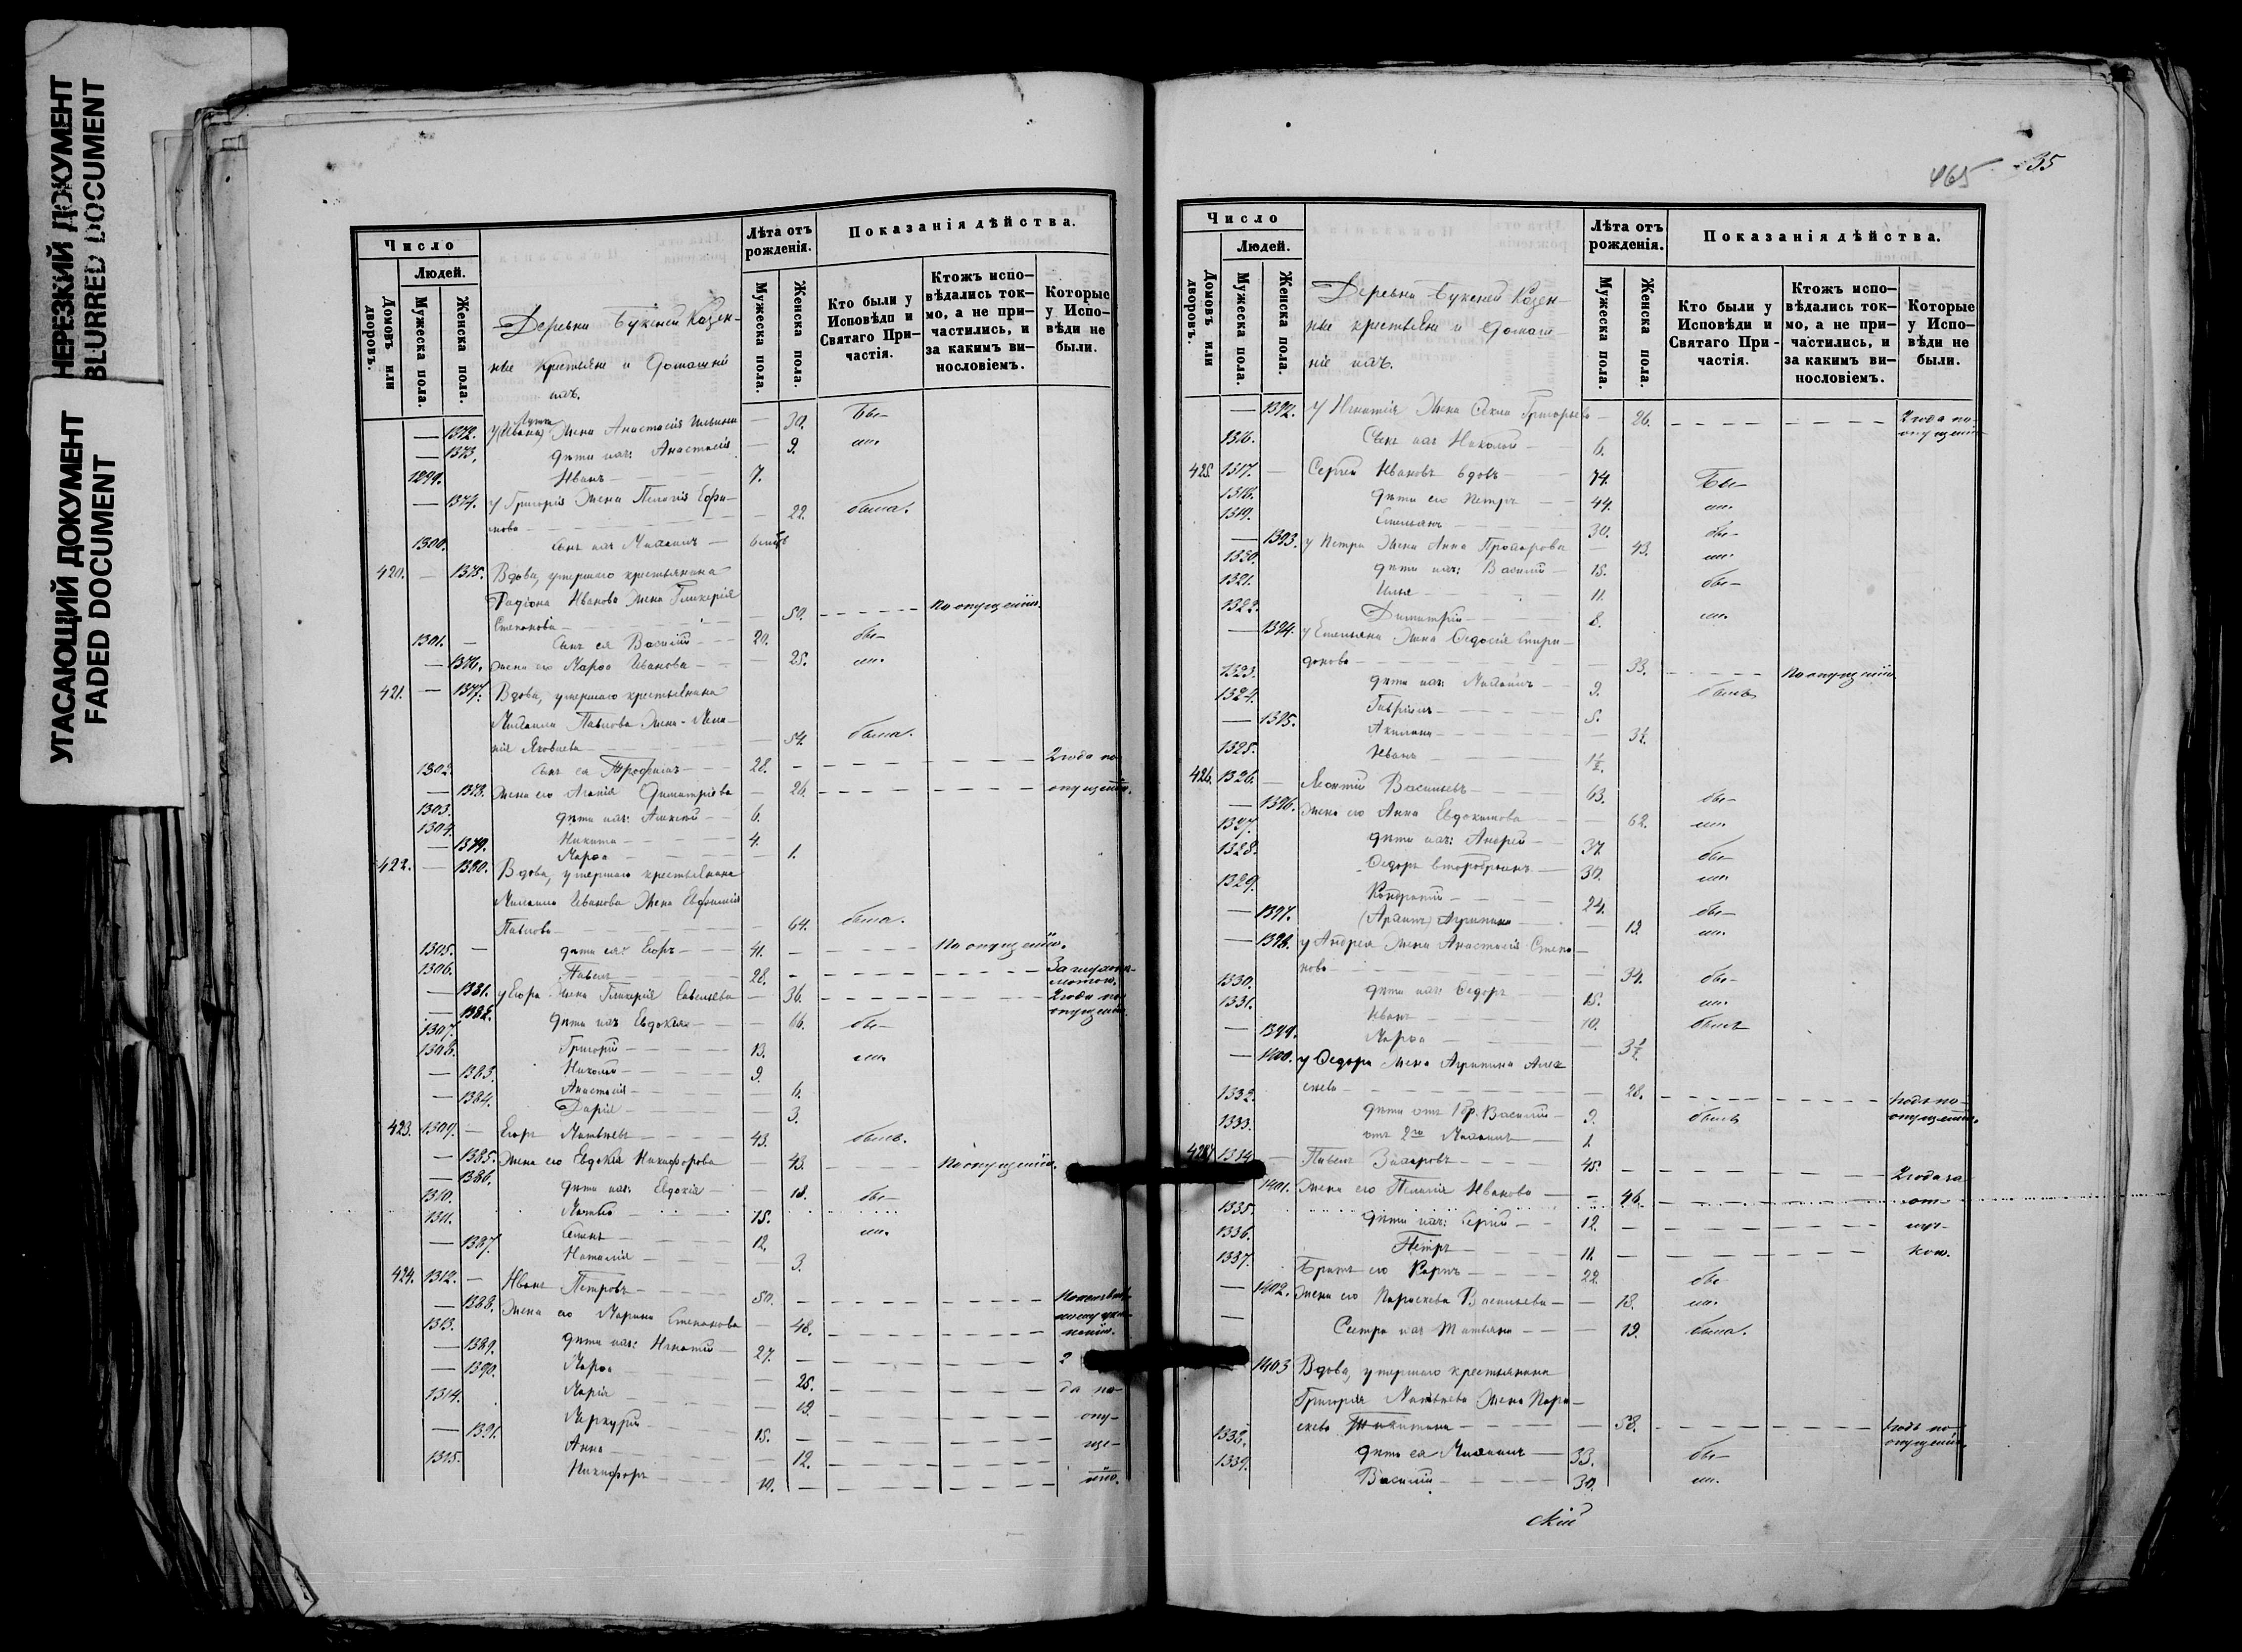 НЕРЕЗКИЙ ДОКУМЕНТ
BLURRED DOCUMENT
УГАСАЮЩИЙ ДОКУМЕНТ
FADED DOCUMENT
Число
Людей.
Домовъ или дворовъ.
Мужеска пола.
Женска пола.
Лѣта отъ рожденія.
Мужеска пола.
Женска пола.
Показанія дѣйства.
Кто были у Исповѣди и Святаго Причастія.
Ктожъ исповѣдались токмо, а не причастились, и за какимъ винословіемъ.
Которые у Исповѣди не были.
Деревни Букеней Казен-
ные крестьяне и домашніе
ихъ.
— 1372. Жена Анастасія Ильина — 30. бы-
— 1373. дѣти ихъ: Анастасія — 9. ли.
1299. Иванъ — 7.
— 1374. у Григорія жена Пелагія Ефи-
мова — 22. была.
1300. сынъ ихъ Михаилъ —
420. — 1375. Вдова, умершаго крестьянина
Родіона Иванова жена Гликерія
Степанова — 50. По опущенію.
1301. — сынъ ея Василій — 20. бы-
— 1376. жена его Марѳа Иванова — 25. ли.
421. — 1377. Вдова, умершаго крестьянина
Михаила Павлова жена Мела-
нія Яковлева — 54. была.
1302. сынъ ея Трофимъ — 28. 2 года по
— 1378. жена его Агапія Димитріева — 26. опущенію.
1303. дѣти ихъ: Алексѣй — 6.
1304. Никита — 4.
— 1379. Марѳа — 1.
422. — 1380. Вдова, умершаго крестьянина
Михаила Иванова жена Евфимія
Павлова — 64. была.
1305. — дѣти ея: Егоръ — 41. По опущенію.
1306. Павелъ — 28.
— 1381. у Егора жена Гликерія Савельева — 36. 2 года по
— 1382. дѣти ихъ Евдокія — 16. бы- опущенію.
1307. Григорій — 13. ли.
1308. Николай — 9.
— 1383. Анастасія — 6.
— 1384. Дарія — 3.
423. 1309. — Егоръ Матвѣевъ — 43. былъ.
— 1385. жена его Евдокія Никифорова — 43. По опущенію.
— 1386. дѣти ихъ: Евдокія — 18. бы-
1310. Матвѣй — 15.
1311. Семенъ — 12. ли.
— 1387. Наталія — 3.
424. 1312. — Иванъ Петровъ — 50.
— 1388. жена его Марина Степанова — 48.
1313. дѣти ихъ: Игнатій — 27. 2
— 1389. Марѳа — 25. да по-
— 1390. Марія — 19. опу-
1314. Меркурій — 15. ще-
— 1391. Анна — 12.
1315. Никифоръ — 10. нію.
465 35
Число
Людей.
Домовъ или дворовъ.
Мужеска пола.
Женска пола.
Лѣта отъ рожденія.
Мужеска пола.
Женска пола.
Показанія дѣйства.
Кто были у Исповѣди и Святаго Причастія.
Ктожъ исповѣдались токмо, а не причастились, и за какимъ винословіемъ.
Которые у Исповѣди не были.
Деревни Букеней Казен-
ные крестьяне и домаш-
ніе ихъ.
— 1392. у Игнатія жена Ѳекла Григорьева — 26. 2 года по
1316. сынъ ихъ Николай — 6. опущенію
425. 1317. — Сергей Ивановъ вдовъ — 74. Бы-
1318. дѣти его Петръ — 44. ли.
1319. Емельянъ — 30. бы-
— 1393. у Петра жена Анна Прохорова — 43. ли.
1320. дѣти ихъ: Василій — 15. бы-
1321. Илья — 11.
1322. Димитрій — 8. ли.
— 1394. у Емельяна жена Ѳедосія Спири-
донова — 33. По опущенію
1323. дѣти ихъ: Михаилъ — 9. былъ
1324. Гавріилъ — 5.
— 1395. Акилина —
1325. Иванъ —
426. 1326. — Леонтій Васильевъ — 63. бы-
— 1396. жена его Анна Евдокимова — 62. ли.
1327. дѣти ихъ: Андрей — 37. бы-
1328. Ѳедоръ второбрачн. — 30. ли.
1329. Кондратій — 24. бы-
— 1397. Агрипина — 19. ли.
— 1398. у Андрея жена Анастасія Степа-
нова — 34. бы-
1330. дѣти ихъ: Ѳедоръ — 15. ли.
1331. Иванъ — 10. былъ
— 1399. Марѳа —
— 1400. у Ѳедора жена Агрипина Алек
сеева — 28. годъ по-
1332. дѣти отъ 1 бр. Василій — 9. былъ опущенію.
1333. отъ 2го Михаилъ — 1.
427. 1334 — Павелъ Захаровъ — 45. 2 года за
1401. жена его Пелагія Иванова — 46. от-
1335. дѣти ихъ: Сергій — 12. луч-
1336. Петръ — 11. кою.
1337. Братъ его Карпъ — 22. бы-
— 1402. жена его Параскева Васильева — 18. ли.
— Сестра ихъ Татьяна — 19. была.
1403 Вдова, умершаго крестьянина
Григорія Матвѣева жена Пара-
скева Никитина — 58. годъ по
1338. дѣти ея Михаилъ — 33. бы- опущенію.
1339. Василій — 30. ли.
скій